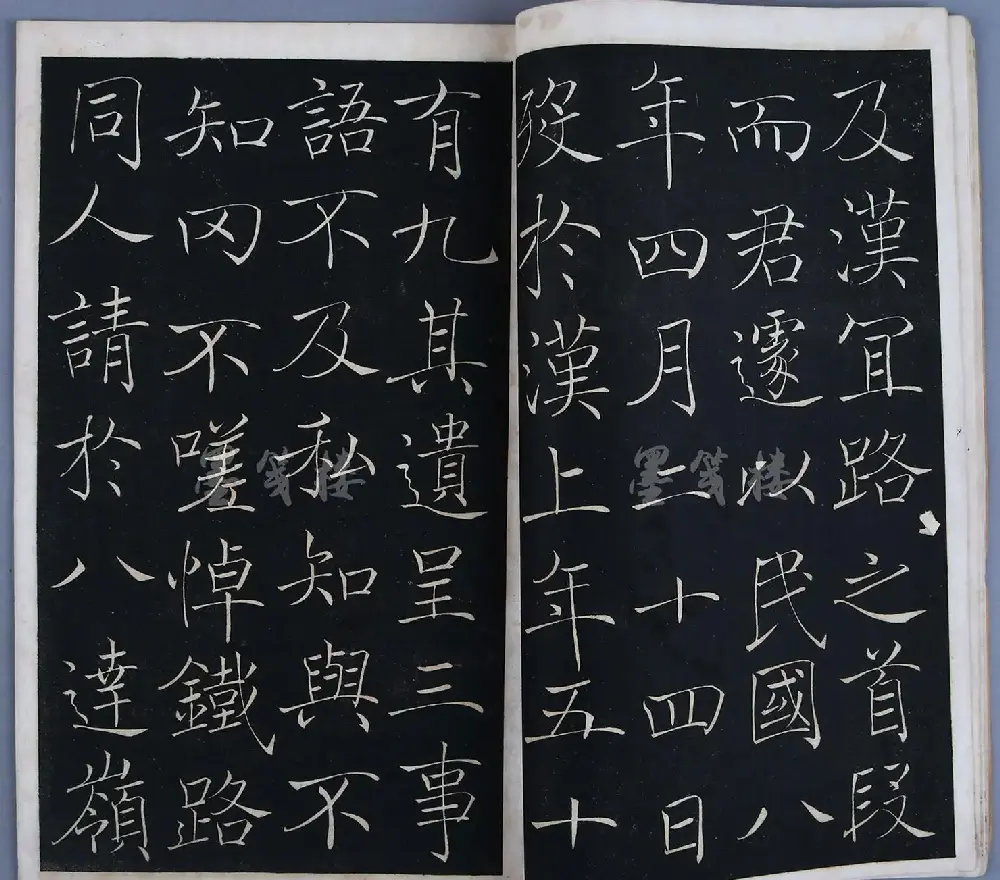 及漢冝路之首段
而君遽以民國八
年四月二十四日
歿於漢上年五十
有九其遺呈三事
語不及私知與不
知罔不嗟悼鐵路
同人請於八達嶺
墨笺楼
墨笺楼